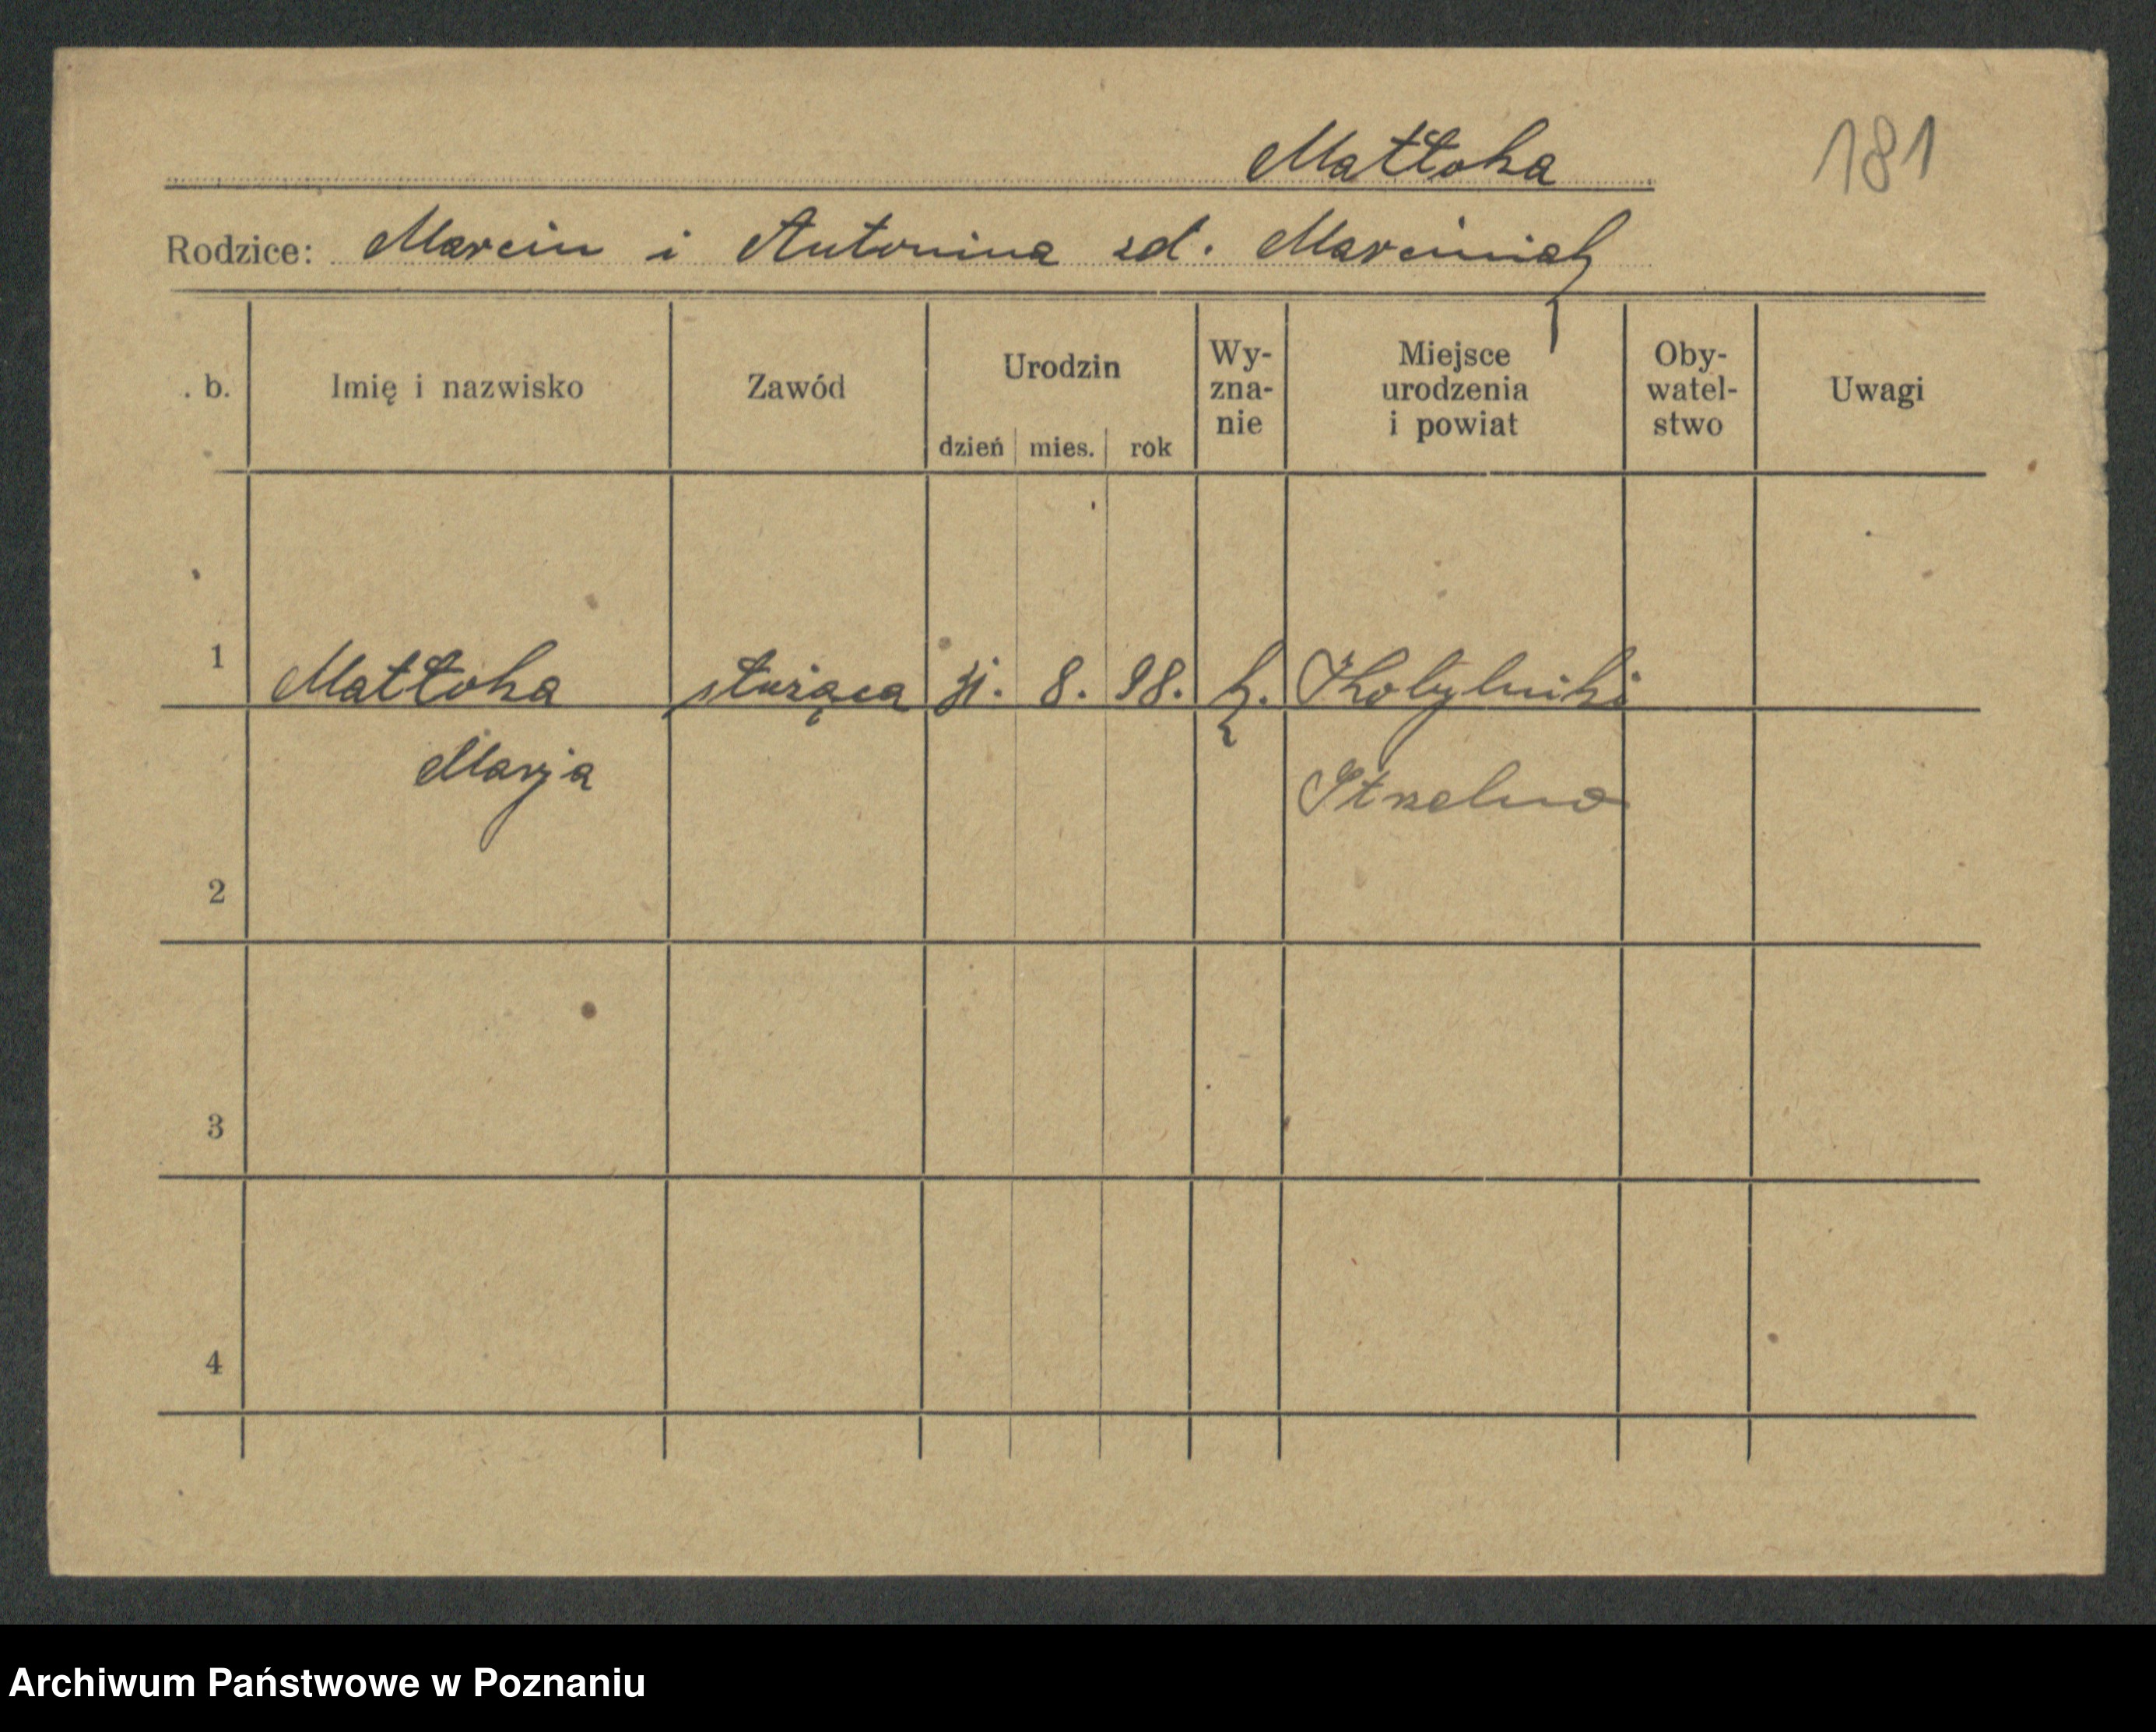 Mattoka 181
Rodzice: Marcin i Antonina zd. Marciniak
. b. Imię i nazwisko Zawód Urodzin dzień mies. rok Wy-zna-nie Miejsce urodzenia i powiat Oby-watel-stwo Uwagi
1 Mattoka służąca 31. 8. 98. k. Kobylniki
Marja Strzelno
2
3
4
Archiwum Państwowe w Poznaniu